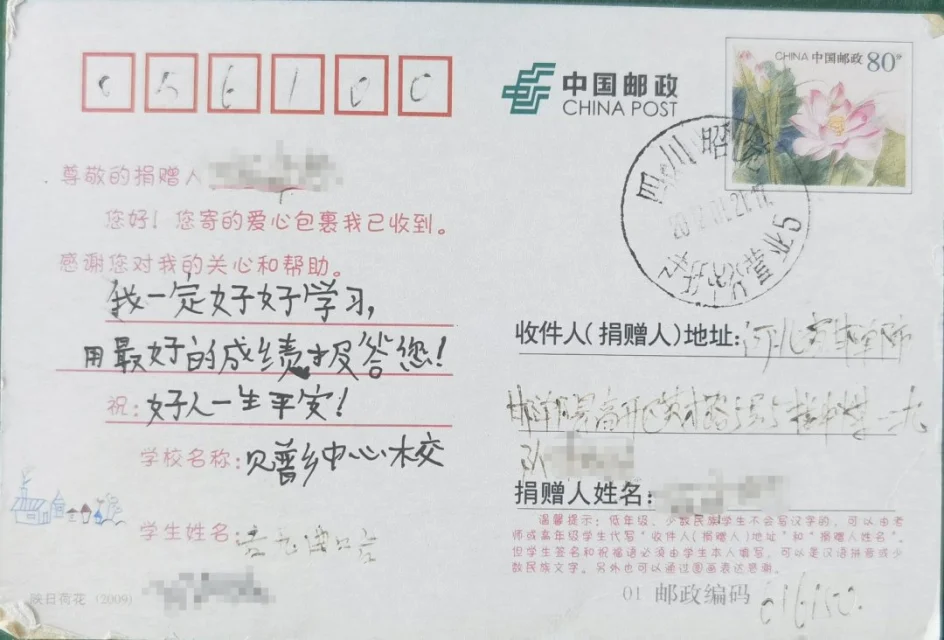 056100
中国邮政
CHINA POST
CHINA 中国邮政 80分
四川 昭觉
尊敬的捐赠人
您好！您寄的爱心包裹我已收到。
感谢您对我的关心和帮助。
我一定好好学习，
用最好的成绩报答您！
祝：好人一生平安！
学校名称：贝普乡中心校
学生姓名：
映日荷花（2009）
收件人（捐赠人）地址：河北省邯郸市
捐赠人姓名：
温馨提示：低年级、少数民族学生不会写汉字的，可以由老
师或高年级学生代写“收件人（捐赠人）地址”和“捐赠人姓名”。
但学生签名和祝福语必须由学生本人填写，可以是汉语拼音或少
数民族文字。另外也可以通过图画表达感谢。
01 邮政编码 616150